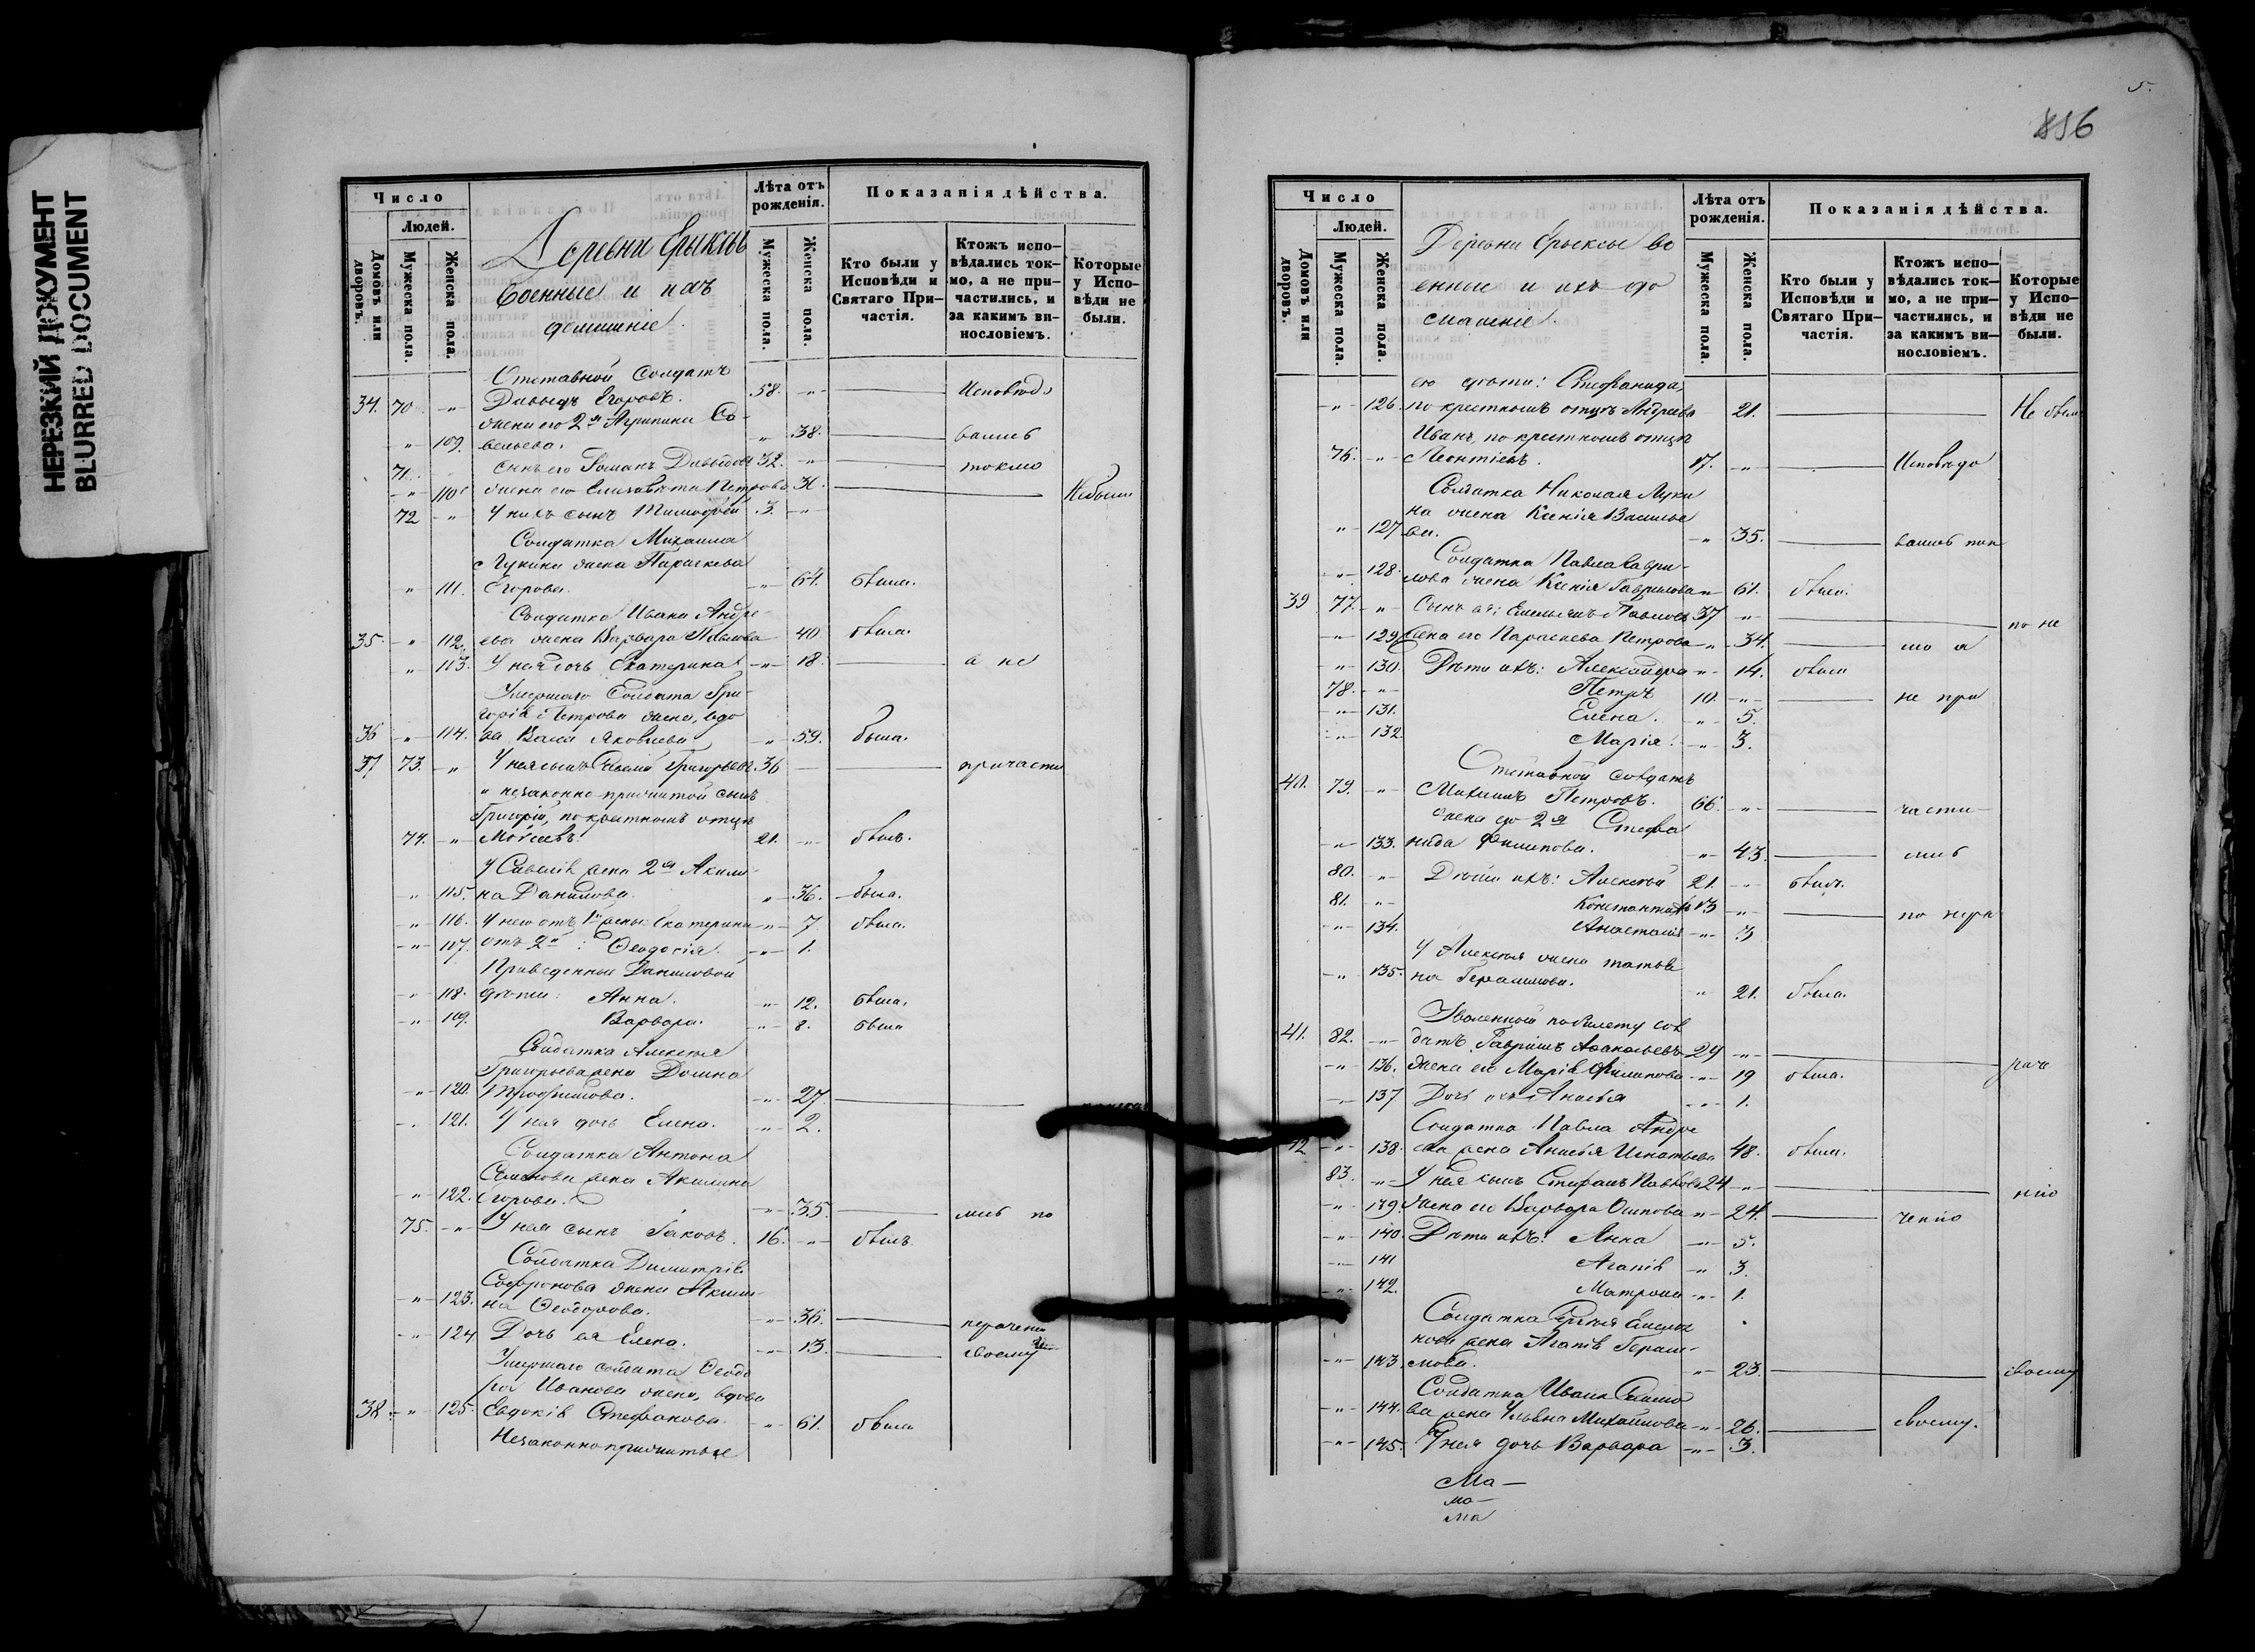 НЕРЕЗКИЙ ДОКУМЕНТ
BLURRED DOCUMENT
Число
Людей.
Домовъ или дворовъ.
Мужеска пола.
Женска пола.
Деревни Ерыксы
Военные и ихъ
домашніе.
Лѣта отъ рожденія.
Мужеска пола.
Женска пола.
Показанія дѣйства.
Кто были у Исповѣди и Святаго Причастія.
Ктожъ исповѣдались токмо, а не причастились, и за какимъ винословіемъ.
Которые у Исповѣди не были.
Отставной Солдатъ
34. 70 - " - Давыдъ Егоровъ. 58. - " - Исповѣд
жена его 2я Агрипина Са-
" 109. вельева. " 38. вались
71. сынъ его Романъ Давыдовъ 32. - " - токмо
- " - 110 жена его Елизавета Петрова 31. Небыли
72 " У нихъ сынъ Тимофей 3. - " -
Солдатка Михаила
Лукина жена Параскева
" 111. Егорова. - " - 64. была.
Солдатка Ивана Андре-
35. - " - 112. ева жена Варвара Павлова 40 была.
" 113. У нея дочь Екатерина - " - 18. а не
Умершаго Солдата Гри-
горія Петрова жена, вдо
36 - " - 114. ва Васса Яковлева " 59. была.
37 73. - " У нея сынъ Савелій Григорьевъ 36 причасти
" незаконно-прижитой сынъ
Григорій, по крестномъ отцѣ
74. - " Моисеевъ. 21. - " - былъ.
У Савелія жена 2я Акили-
" 115. на Данилова. " 36. была.
- " - 116. У него отъ 1й жены: Екатерина - " - 7. была.
- " - 117. отъ 2й: Ѳеодосія. - " - 1.
Приведенные Даниловой
- " 118. дѣти: Анна. - " - 12. была.
- " 119. Варвара. - " - 8. была
Солдатка Алексѣя
Григорьева жена Домна
- " 120. Трофимова. - " - 27.
- . 121. У нея дочь Елена. - " - 2.
Солдатка Антона
Семенова жена Акилина
- " 122. Егорова. - " - 35. лись по
75. - " - У нея сынъ Іаковъ. 16. - " - былъ
Солдатка Димитрія
Софронова жена Акили-
- " - 123. на Ѳеодорова. - " - 36. нерачені
- " 124. Дочь ея Елена. - " - 13. своему
Умершаго солдата Ѳеодо
ра Иванова жена, вдова
38. - " - 125. Евдокія Стефанова. - " 61. была
Незаконноприжитые
5.
856
Число
Людей.
Домовъ или дворовъ.
Мужеска пола.
Женска пола.
Деревни Ерыксы во
енные и ихъ до
машніе.
Лѣта отъ рожденія.
Мужеска пола.
Женска пола.
Показанія дѣйства.
Кто были у Исповѣди и Святаго Причастія.
Ктожъ исповѣдались токмо, а не причастились, и за какимъ винословіемъ.
Которые у Исповѣди не были.
ею дѣти: Стефанида,
- " - 126. по крестномъ отцѣ Андреева 21. Не был
Иванъ, по крестномъ отцѣ
76. - " - Леонтіевъ. 17. - " - Исповѣда
Солдатка Николая Луки
на жена Ксенія Василье
" 127 ва. " 35. вались ток
Солдатка Павла Гаври-
" 128. лова жена Ксенія Гаврилова " 61. была.
39 77. - " Сынъ ея: Емельянъ Павловъ 37 " по не
" 129. Жена его Параскева Петрова " 34. мо а
- " 130. Дѣти ихъ: Александра - " - 14. была
78. - " - Петръ 10. - " - не при
- " - 131. Елена. - " - 5.
- " - 132. Марія. - " - 3.
Отставной солдатъ
40. 79. - " - Михаилъ Петровъ. 66. - " - части-
жена его 2я Стефа
- " - 133. нида Филипова. - " - 43. лись
80. - " Дѣти ихъ: Алексѣй 21. - " - былъ.
81. - " - Константинъ 13 - " - по нера
- " 134. Анастасія - " - 3
У Алексѣя жена Татья
- " 135. на Герасимова. " 21. была.
Уволенной по билету сол
41. 82. - " - датъ Гавріилъ Аѳанасьевъ 29 - " - раче
- " 136. Жена его Марія Филипова - " - 19 была.
- " - 137 Дочь ихъ Анисья - " - 1.
Солдатка Павла Андре
42 - " - 138. ева жена Анисья Игнатьева 48. была.
83. - " У нея сынъ Стефанъ Павловъ 24 - " - нію
- " 139. Жена его Варвара Осипова " 24. ченію
- " 140. Дѣти ихъ: Анна - " - 5.
- " - 141 Агапія - " 3.
- " - 142. Матрона - " - 1.
Солдатка Сергѣя Емелья
нова жена Агапія Гераси-
- " - 143. мова. " 23. своему
Солдатка Ивана Савело
- " - 144. ва жена Ульяна Михайлова - " - 26. своему.
- " - 145. У нея дочь Варвара - " - 3.
Ма-
мо-
ма